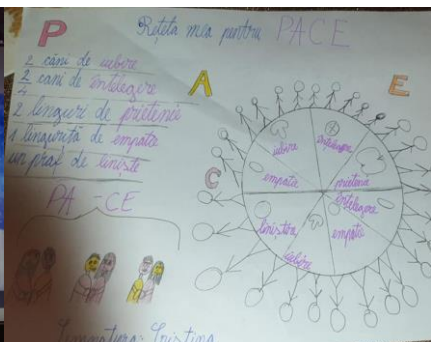 P
Rețeta mea pentru PACE
2 căni de iubire
2 cani de întelegere
4
2 linguri de prietenie
1 linguriță de empatie
un praf de liniste
A
E
C
PA-CE
iubire
întelegere
empatia
prietenia
întelegere
liniștea
empatia
iubire
Semnatura: Cristina